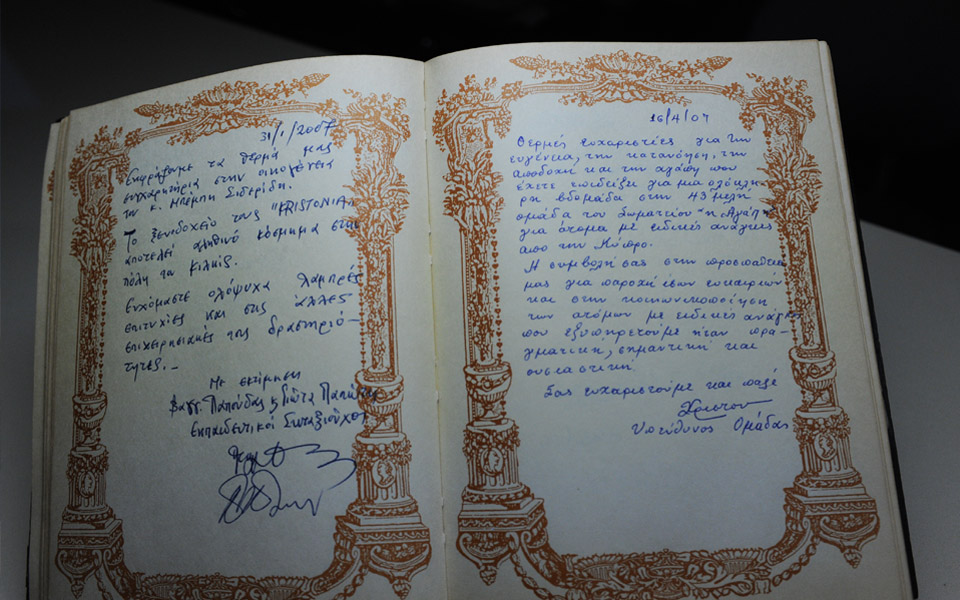 31/1/2007
Εκφράζουμε τα θερμά μας
συγχαρητήρια στην οικογένεια
του κ. Μπάμπη Σιδερίδη.
Το ξενοδοχείο τους "KRISTONIA"
αποτελεί αληθινό κόσμημα στην
πόλη του Κιλκίς.
Ευχόμαστε ολόψυχα λαμπρές
επιτυχίες και στις άλλες
επιχειρησιακές τους δραστηριό-
τητες.-
Με εκτίμηση
Βαγγ. Παπούδας & Γιώτα
Εκπαιδευτικοί Συνταξιούχοι
16/4/07
Θερμές ευχαριστίες για την
ευγένεια, την κατανόηση, την
αποδοχή και την αγάπη που
έχετε επιδείξει για μια ολόκλη-
ρη βδομάδα στην 43 μελή
ομάδα του Σωματείου "η Αγάπη"
για άτομα με ειδικές ανάγκες
από την Κύπρο.
Η συμβολή σας στην προσπάθεια
μας για παροχή ίσων ευκαιριών
και στην κοινωνικοποίηση
των ατόμων με ειδικές ανάγκες
που εξυπηρετούμε ήταν πρα-
γματική, σημαντική και
ουσιαστική.
Σας ευχαριστούμε και πάλι
Χρίστου
Υπεύθυνος Ομάδας